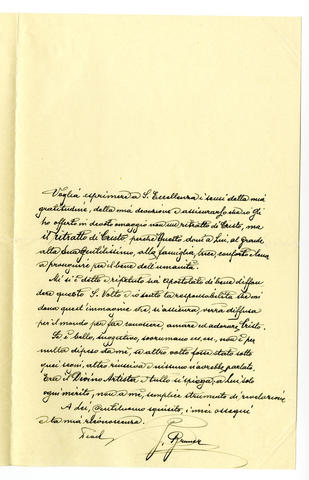 Voglia esprimere a S. Eccellenza i sensi della mia
gratitudine, della mia devozione e assicurarlo che io Gli
ho offerto in devoto omaggio non un ritratto di Cristo, ma
il ritratto di Cristo, perchè Questo doni a Lui, al grande
alla Sua famiglia, conforto e
a proseguire per il bene dell'umanità.
Mi si è detto e ripetuto sia apostolato di bene diffon
dere questo S. Volto e io sento la responsabilità che mi
dona quest'immagine che, si assicura, verrà diffusa
per il mondo per far conoscere, amare ed adorare Cristo.
Se è bello, suggestivo, sovrumano ecc. ecc., non è per
multa dipeso da me, se altro volto fosse stato sotto
quei segni, altro riusciva e nessuno n'avrebbe parlato.
Era il Divino Artista e tutto si spiega; a Lui solo
ogni merito, non a me, semplice strumento di rivelazione.
A Lei, Gentiluomo squisito, i miei ossequi
e la mia riconoscenza.
G. Bruner